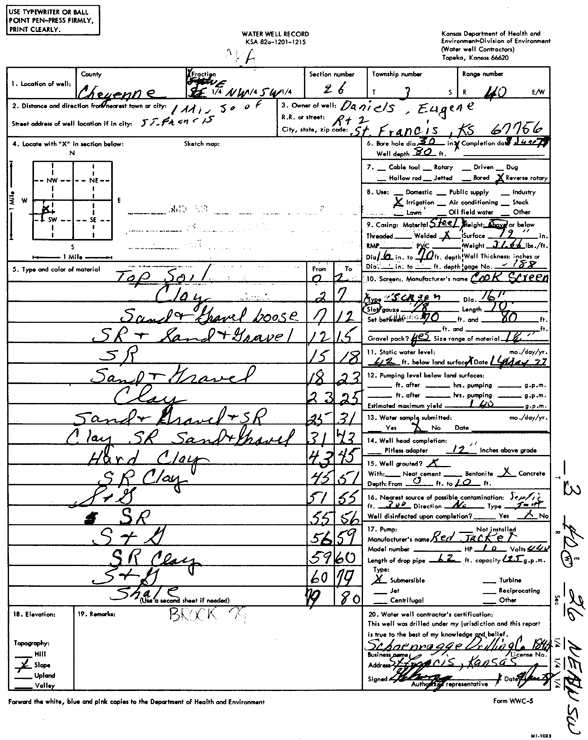 USE TYPEWRITER OR BALL
POINT PEN-PRESS FIRMLY,
PRINT CLEARLY.
WATER WELL RECORD
KSA 82a-1201-1215
Kansas Department of Health and
Environment-Division of Environment
(Water well Contractors)
Topeka, Kansas 66620
1. Location of well:
County
Cheyenne
Fraction
1/4 NW 1/4 SW 1/4
Section number
26
Township number
T 3 S
Range number
R 40 E/W
2. Distance and direction from nearest town or city: 1 Mi. So of
Street address of well location if in city: St. Francis
3. Owner of well: Daniels, Eugene
R.R. or street: Rt 2
City, state, zip code: St. Francis, KS 67756
4. Locate with "X" in section below:
Sketch map:
N
NW NE
W E
SW SE
S
1 Mile
1 Mile
6. Bore hole dia. 30 in. Completion date
Well depth 80 ft.
7. Cable tool Rotary Driven Dug
Hollow rod Jetted Bored X Reverse rotary
8. Use: Domestic Public supply Industry
X Irrigation Air conditioning Stock
Lawn Oil field water Other
9. Casing: Material Steel Height: Above or below
Threaded Welded X Surface 12" in.
RMP PVC Weight 31.66 lbs./ft.
Dia. 16 in. to 70 ft. depth Wall Thickness: inches or
Dia. in. to ft. depth gage No. .188
5. Type and color of material From To
Top Soil 0 2
Clay 2 7
Sand & Gravel Loose 7 12
SR & Sand & Gravel 12 15
SR 15 18
Sand & Gravel 18 23
Clay 23 25
Sand & Gravel & SR 25 31
Clay SR Sand & Gravel 31 43
Hard Clay 43 45
SR Clay 45 51
S & G 51 55
SR 55 56
S & G 56 59
SR Clay 59 60
S & G 60 79
Shale 79 80
(Use a second sheet if needed)
10. Screen: Manufacturer's name Cook Screen
Type Screen Dia. 16"
Slot/gauze Length 10'
Set between 70 ft. and 80 ft.
ft. and ft.
Gravel pack? yes Size range of material
11. Static water level: mo./day/yr.
42 ft. below land surface Date 14 May 77
12. Pumping level below land surfaces:
ft. after hrs. pumping g.p.m.
ft. after hrs. pumping g.p.m.
Estimated maximum yield g.p.m.
13. Water sample submitted: mo./day/yr.
Yes X No Date
14. Well head completion:
Pitless adapter 12" Inches above grade
15. Well grouted? X
With: Neat cement Bentonite X Concrete
Depth: From 0 ft. to 10 ft.
16. Nearest source of possible contamination: Septic
ft. 300 Direction Type
Well disinfected upon completion? Yes X No
17. Pump: Not installed
Manufacturer's name Red Jacket
Model number HP 10 Volts
Length of drop pipe 62 ft. capacity 125 g.p.m.
Type:
X Submersible Turbine
Jet Reciprocating
Centrifugal Other
18. Elevation:
Topography:
Hill
X Slope
Upland
Valley
19. Remarks:
BROCK 79
20. Water well contractor's certification:
This well was drilled under my jurisdiction and this report
is true to the best of my knowledge and belief.
Schoenrogge Drilling Co
Business name License No.
Address St Francis, Kansas
Signed Date
Authorized representative
Forward the white, blue and pink copies to the Department of Health and Environment
Form WWC-5
T 3 R 40 E W Sec 26 1/4 1/4 1/4 NE NW SW